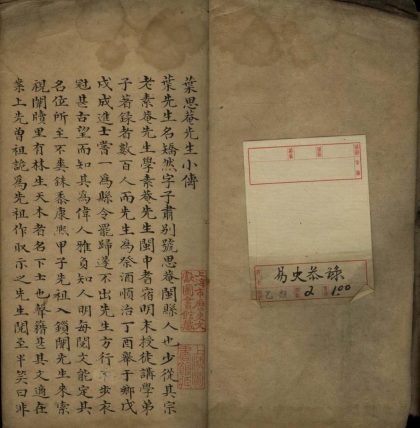 葉思菴先生小傳
葉先生名矯然字子肅別號思菴閩縣人也少從其宗
老素菴先生學素菴先生閩中耆宿明末授徒講學弟
子著錄者數百人而先生為祭酒順治丁酉舉于鄉戊
戌成進士嘗一為縣令罷歸遂不出先生方行矩步衣
冠甚古望而知其為偉人雅負知人明每閱文能定其
名位所至不爽銖黍康熙甲子先祖入鎖闈先生來索
視闈牘里有林生天木者名下士也聲籍甚其文適在
案上先曾祖詭為先祖作取示之先生閱至半笑曰非
易史叅錄
2
1.00